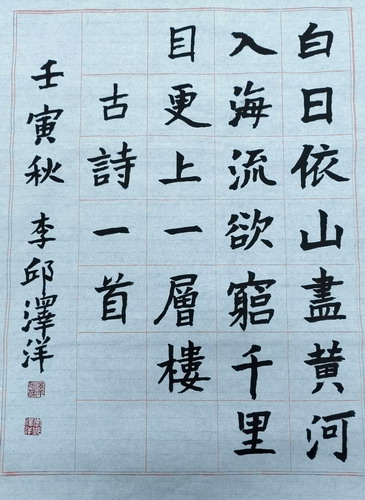 白日依山盡黄河
入海流欲窮千里
目更上一層樓
古詩一首
壬寅秋 李邱澤洋